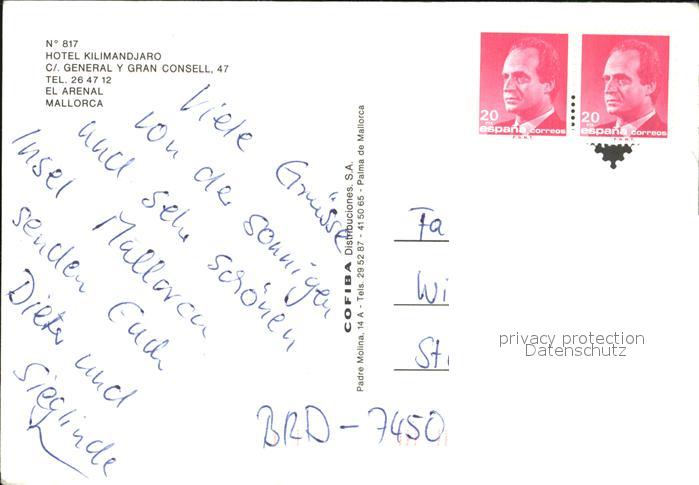 Nº 817
HOTEL KILIMANDJARO
C/. GENERAL Y GRAN CONSELL, 47
TEL. 26 47 12
EL ARENAL
MALLORCA
Viele Grüsse
von der sonnigen
und sehr schönen
Insel Mallorca
senden Euch
Dieter und
Sieglinde
COFIBA Distribuciones, S.A.
Padre Molina, 14 A - Tels. 29 52 87 - 41 50 65 - Palma de Mallorca
20 PTA
españa correos
F.N.M.T.
20 PTA
españa correos
F.N.M.T.
Fa
Wi
St
BRD - 7450
privacy protection
Datenschutz